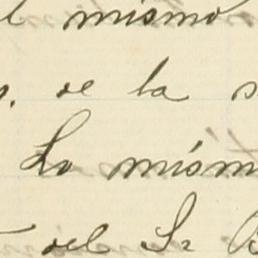 el mismo
de la
Lo mism
del Sr B